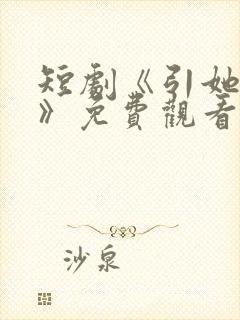 短劇《引她
》免費觀看
沙泉